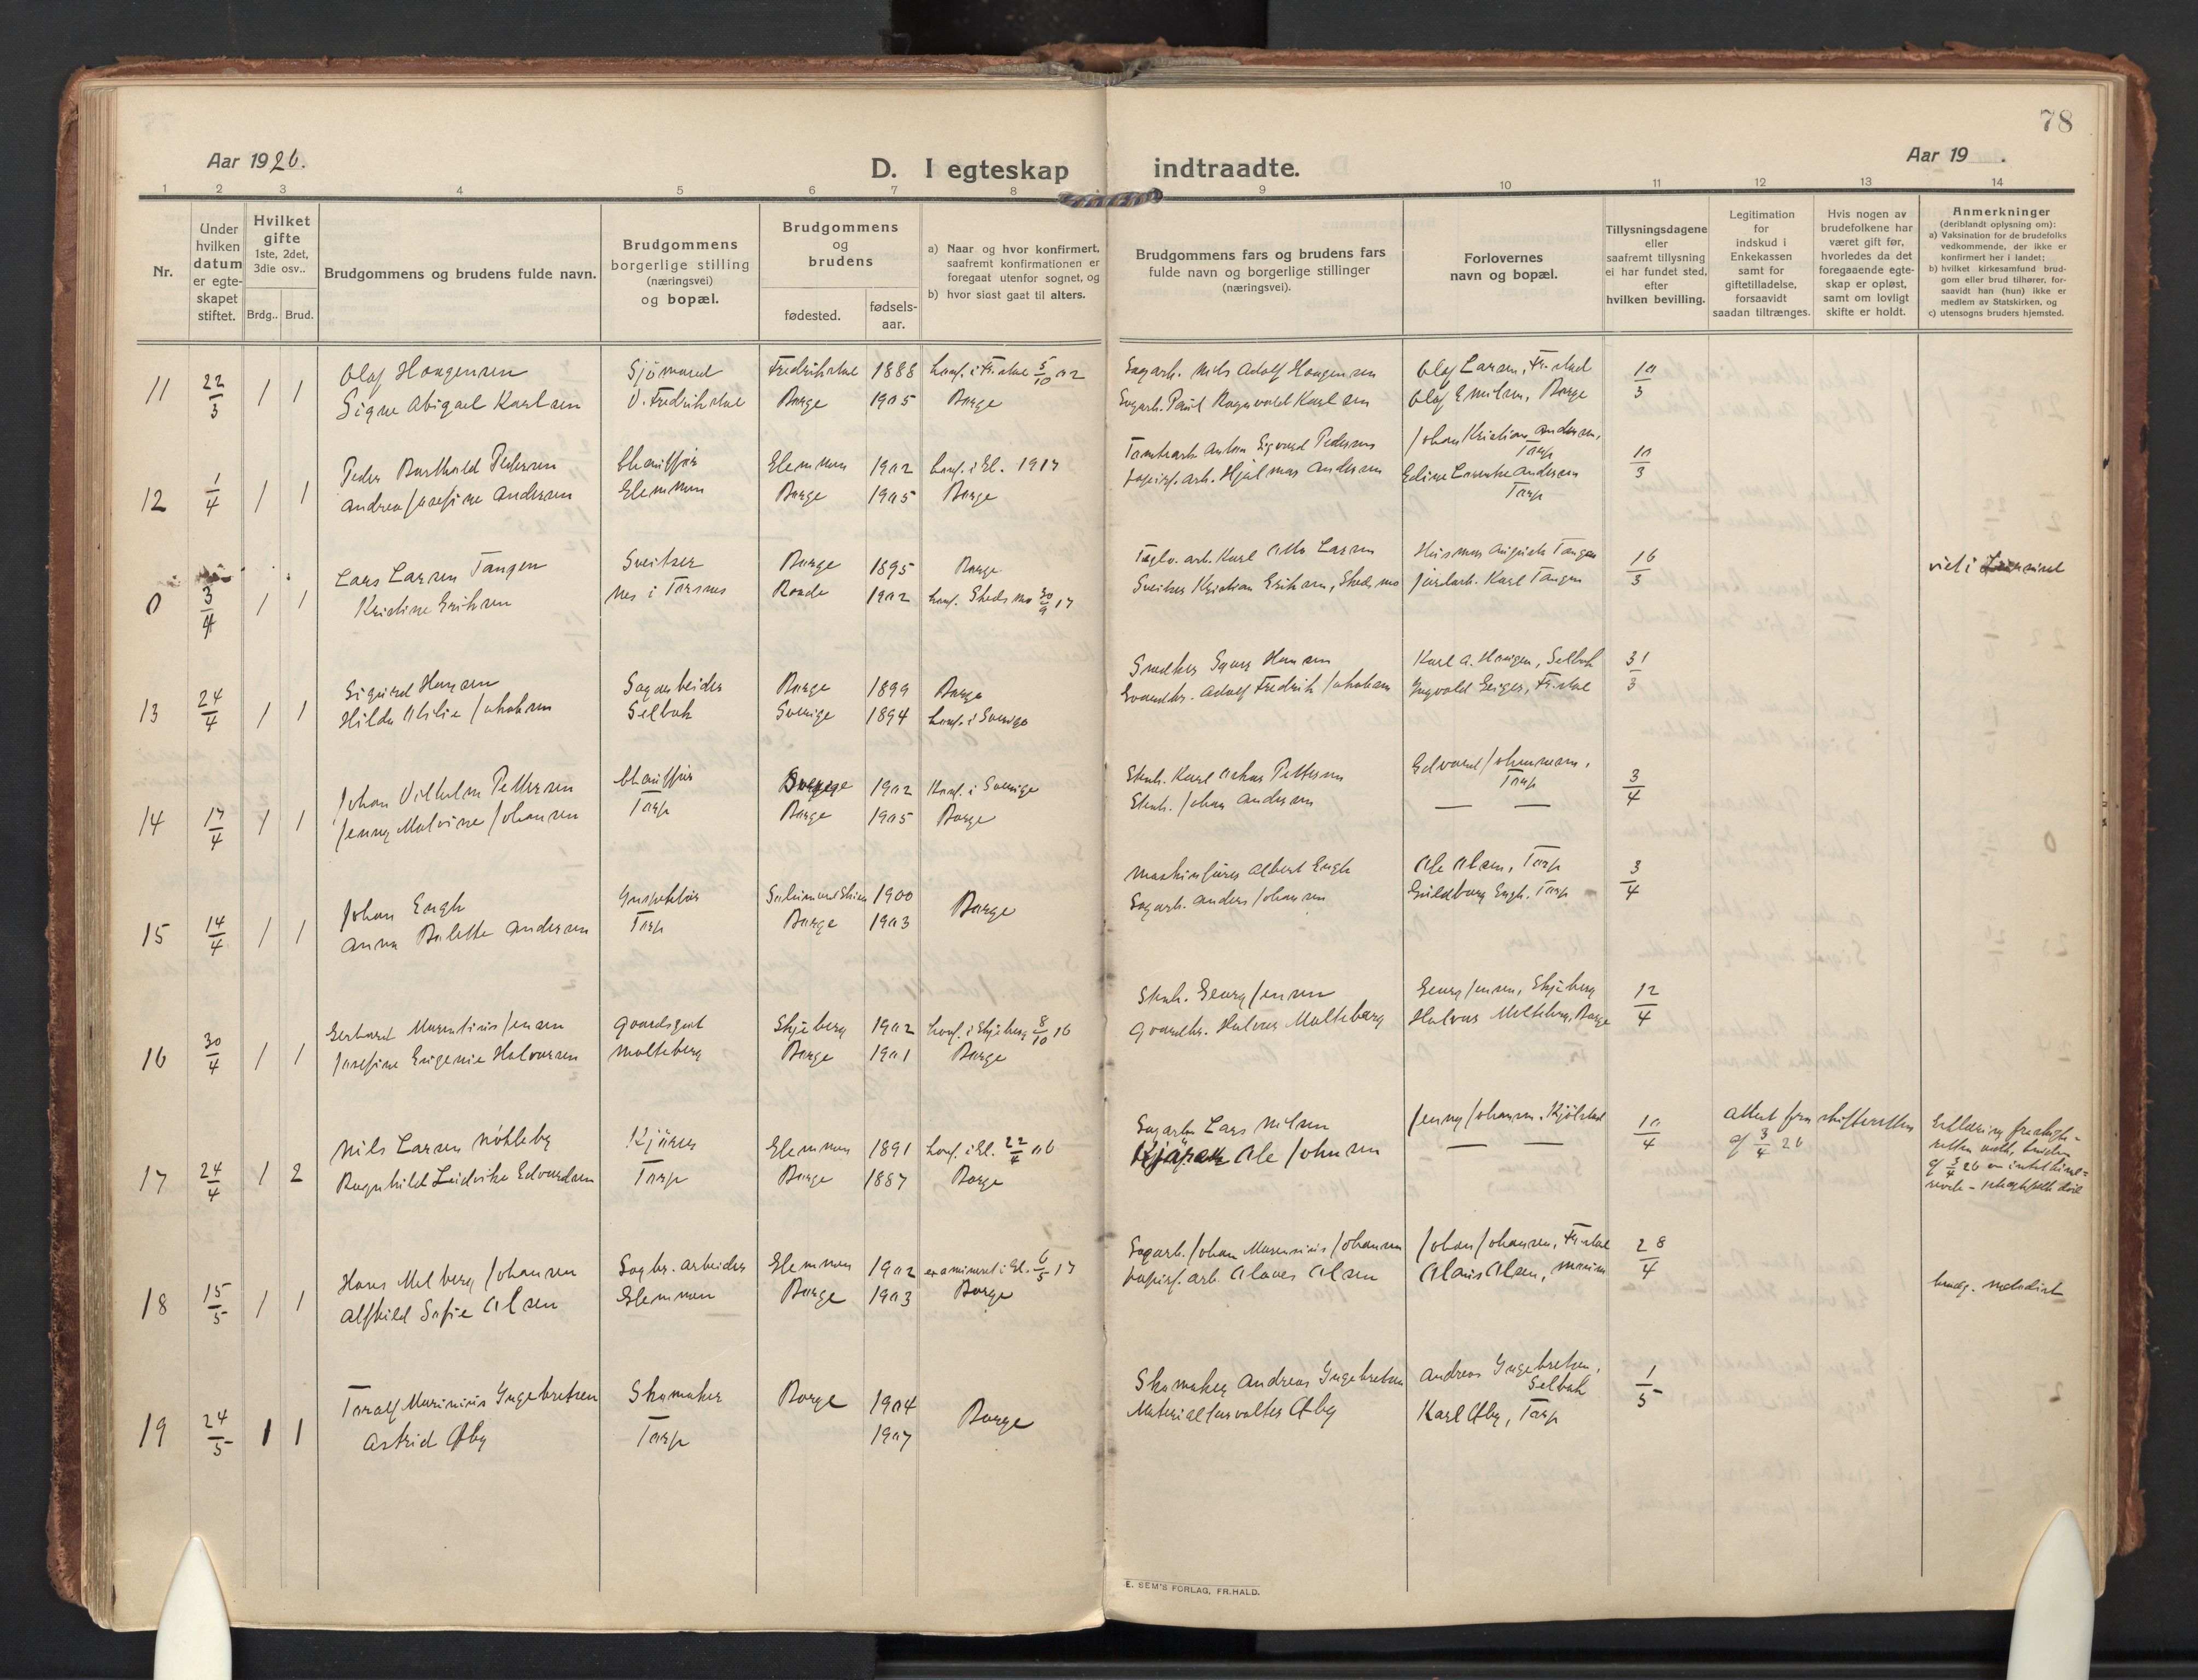 78
Aar 1926.
D. I egteskap indtraadte.
Aar 19 .
1 2 3 4 5 6 7 8 9 10 11 12 13 14
Nr.
Under hvilken datum er egteskapet stiftet.
Hvilket gifte 1ste, 2det, 3die osv..
Brdg.. Brud.
Brudgommens og brudens fulde navn.
Brudgommens borgerlige stilling (næringsvei) og bopæl.
Brudgommens og brudens
fødested.
fødsels-aar.
a) Naar og hvor konfirmert, saafremt konfirmationen er foregaat utenfor sognet, og
b) hvor sidst gaat til alters.
Brudgommens fars og brudens fars fulde navn og borgerlige stillinger (næringsvei).
Forlovernes navn og bopæl.
Tillysningsdagene eller saafremt tillysning ei har fundet sted, efter hvilken bevilling.
Legitimation for indskud i Enkekassen samt for giftetilladelse, forsaavidt saadan tiltrænges.
Hvis nogen av brudefolkene har været gift før, hvorledes da det foregaaende egteskap er opløst, samt om lovligt skifte er holdt.
Anmerkninger (deriblandt oplysning om):
a) Vaksination for de brudefolks vedkommende, der ikke er konfirmert her i landet;
b) hvilket kirkesamfund brudgom eller brud tilhører, forsaavidt han (hun) ikke er medlem av Statskirken, og
c) utensogns bruders hjemsted.
11 22/3 1 1 Olaf Haagensen Sjömand Fredrikstad 1888 konf. i Fr.stad 5/10 02 Sagarb. Nils Adolf Haagensen Olaf Larsen, Fr.stad 10/3
Signe Abigael Karlsen V. Fredrikstad Borge 1905 Borge Sagarb. Paul Ragnvald Karlsen Olaf Emilsen, Borge
12 1/4 1 1 Peder Barthold Pedersen Chaufför Glemmen 1902 konf. i Gl. 1917 Tomtearb. Anton Sigvard Pedersen Johan Kristian Andersen, Torp 10/3
Andrea Josefine Andersen Glemmen Borge 1905 Borge Papirf. arb. Hjalmar Andersen Edine Laurentse Andersen Torp
0 3/4 1 1 Lars Larsen Tangen Sveitser Borge 1895 Borge Teglv. arb. Karl Otto Larsen Husman August Tangen 16/3 viet i
Kristine Eriksen Nes i Torsnes Raade 1902 konf. Skedsmo 30/9 17 Sveitser Kristian Eriksen, Skedsmo Jordarb. Karl Tangen
13 24/4 1 1 Sigurd Hansen Sagarbeider Borge 1899 Borge Snedker Georg Hansen Karl A. Haugen, Selbak 31/3
Hilda Otilie Jakobsen Selbak Sverige 1894 konf. i Sverige Gaardbr. Adolf Fredrik Jakobsen Ingvald Geiger, Fr.stad
14 17/4 1 1 Johan Vilhelm Pettersen Chaufför Sverige 1902 Konf. i Sverige Stenh. Karl Oskar Pettersen Edvard Johannesen, Torp 3/4
Jenny Malvine Johansen Torp Borge 1905 Borge Stenh. Johan Andersen — —
15 14/4 1 1 Johan Engh Inspektör 1900 Borge Maskinförer Albert Engh Ole Olsen, Torp 3/4
Anna Bolette Andersen Torp Borge 1903 Sagarb. Anders Johansen Guldborg Engh, Torp
16 30/4 1 1 Gerhard Marentius Jensen Gaardsgut Skjeberg 1902 konf. i Skjeberg 8/10 16 Stenh. Georg Jensen Georg Jensen, Skjeberg 12/4
Josefine Eugenie Halvorsen Molteberg Borge 1901 Borge Gaardbr. Halvor Molteberg Halvor Molteberg, Borge
17 24/4 1 2 Nils Larsen Nökleby Kjörer Glemmen 1891 konf. i Gl. 22/4 06 Sagarb. Lars Nilsen Jenny Johansen, Kjölstad 10/4 Attest fra skifteretten af 3/4 26
Ragnhild Ludvika Edvardsen Torp Borge 1887 Borge Kjörer Ole Johnsen — —
18 15/5 1 1 Hans Melberg Johansen Sagbr. arbeider Glemmen 1902 examineret i Gl. 6/5 17 Sagarb. Johan Marensius Johansen Johan Johansen, Fr.stad 28/4 brudg. metodist
Alfhild Sofie Olsen Glemmen Borge 1903 Borge Papirf. arb. Olaves Olsen Olaus Olsen, Moum
19 24/5 1 1 Toralf Marinius Ingebretsen Skomaker Borge 1904 Borge Skomaker Andreas Ingebretsen Andreas Ingebretsen, Selbak 1/5
Astrid Øby Torp 1907 Materialforvalter Øby Karl Øby, Torp
E. SEM'S FORLAG, FR.HALD.